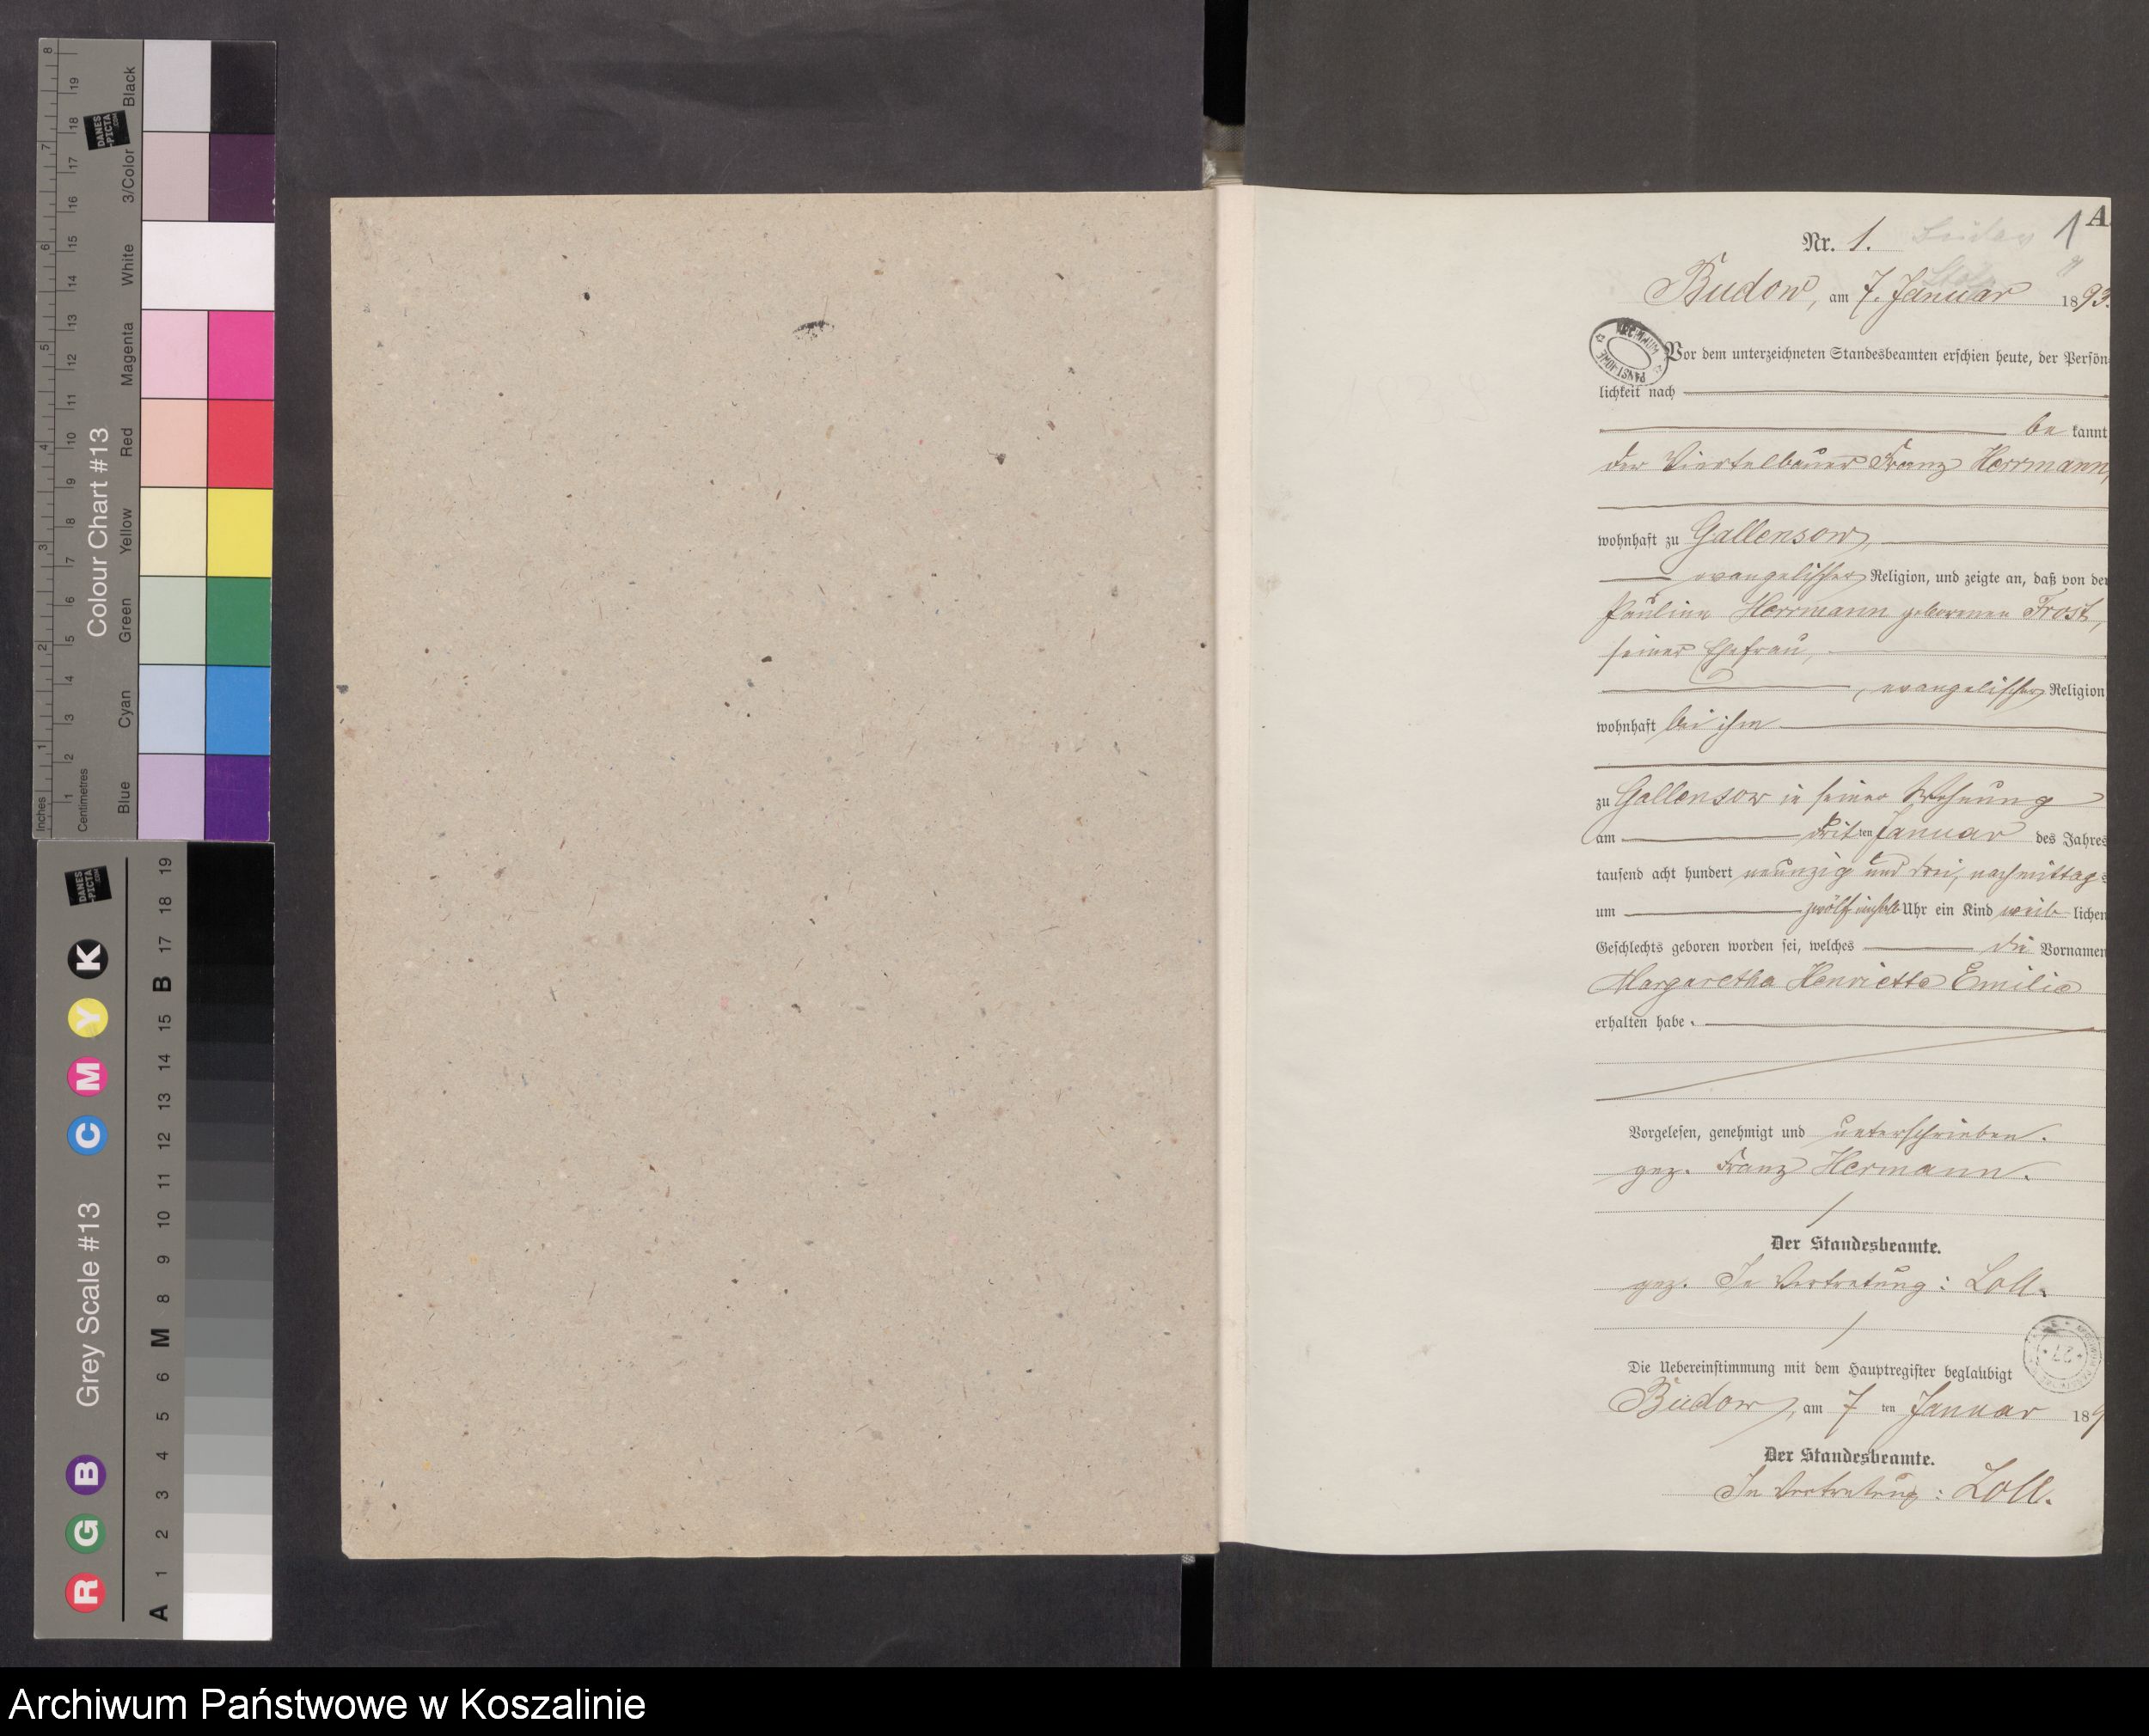 A
1
Nr. 1.
Budow, am 7. Januar 1893.
Vor dem unterzeichneten Standesbeamten erschien heute, der Persön-
lichkeit nach
be kannt
der Viertelbauer Franz Herrmann,
wohnhaft zu Gallensow,
evangelischer Religion, und zeigte an, daß von der
Pauline Herrmann geborenen Frost,
seiner Ehefrau,
evangelischer Religion
wohnhaft bei ihm
zu Gallensow in seiner Wohnung
am drit ten Januar des Jahres
tausend acht hundert neunzig und drei, nachmittags
um zwölf einhalb Uhr ein Kind weib lichen
Geschlechts geboren worden sei, welches die Vornamen
Margaretha Henriette Emilie
erhalten habe.
Vorgelesen, genehmigt und unterschrieben.
gez. Franz Hermann.
Der Standesbeamte.
gez. In Vertretung: Loll.
Die Uebereinstimmung mit dem Hauptregister beglaubigt
Budow, am 7 ten Januar 189
Der Standesbeamte.
In Vertretung: Loll.
Colour Chart #13
Black
3/Color
White
Magenta
Red
Yellow
Green
Cyan
Blue
Inches
Centimetres
DANES
-PICTA
.COM
Grey Scale #13
R G B C M Y K
A 1 2 3 4 5 6 M 8 9 10 11 12 13 14 15 B 17 18 19
Archiwum Państwowe w Koszalinie